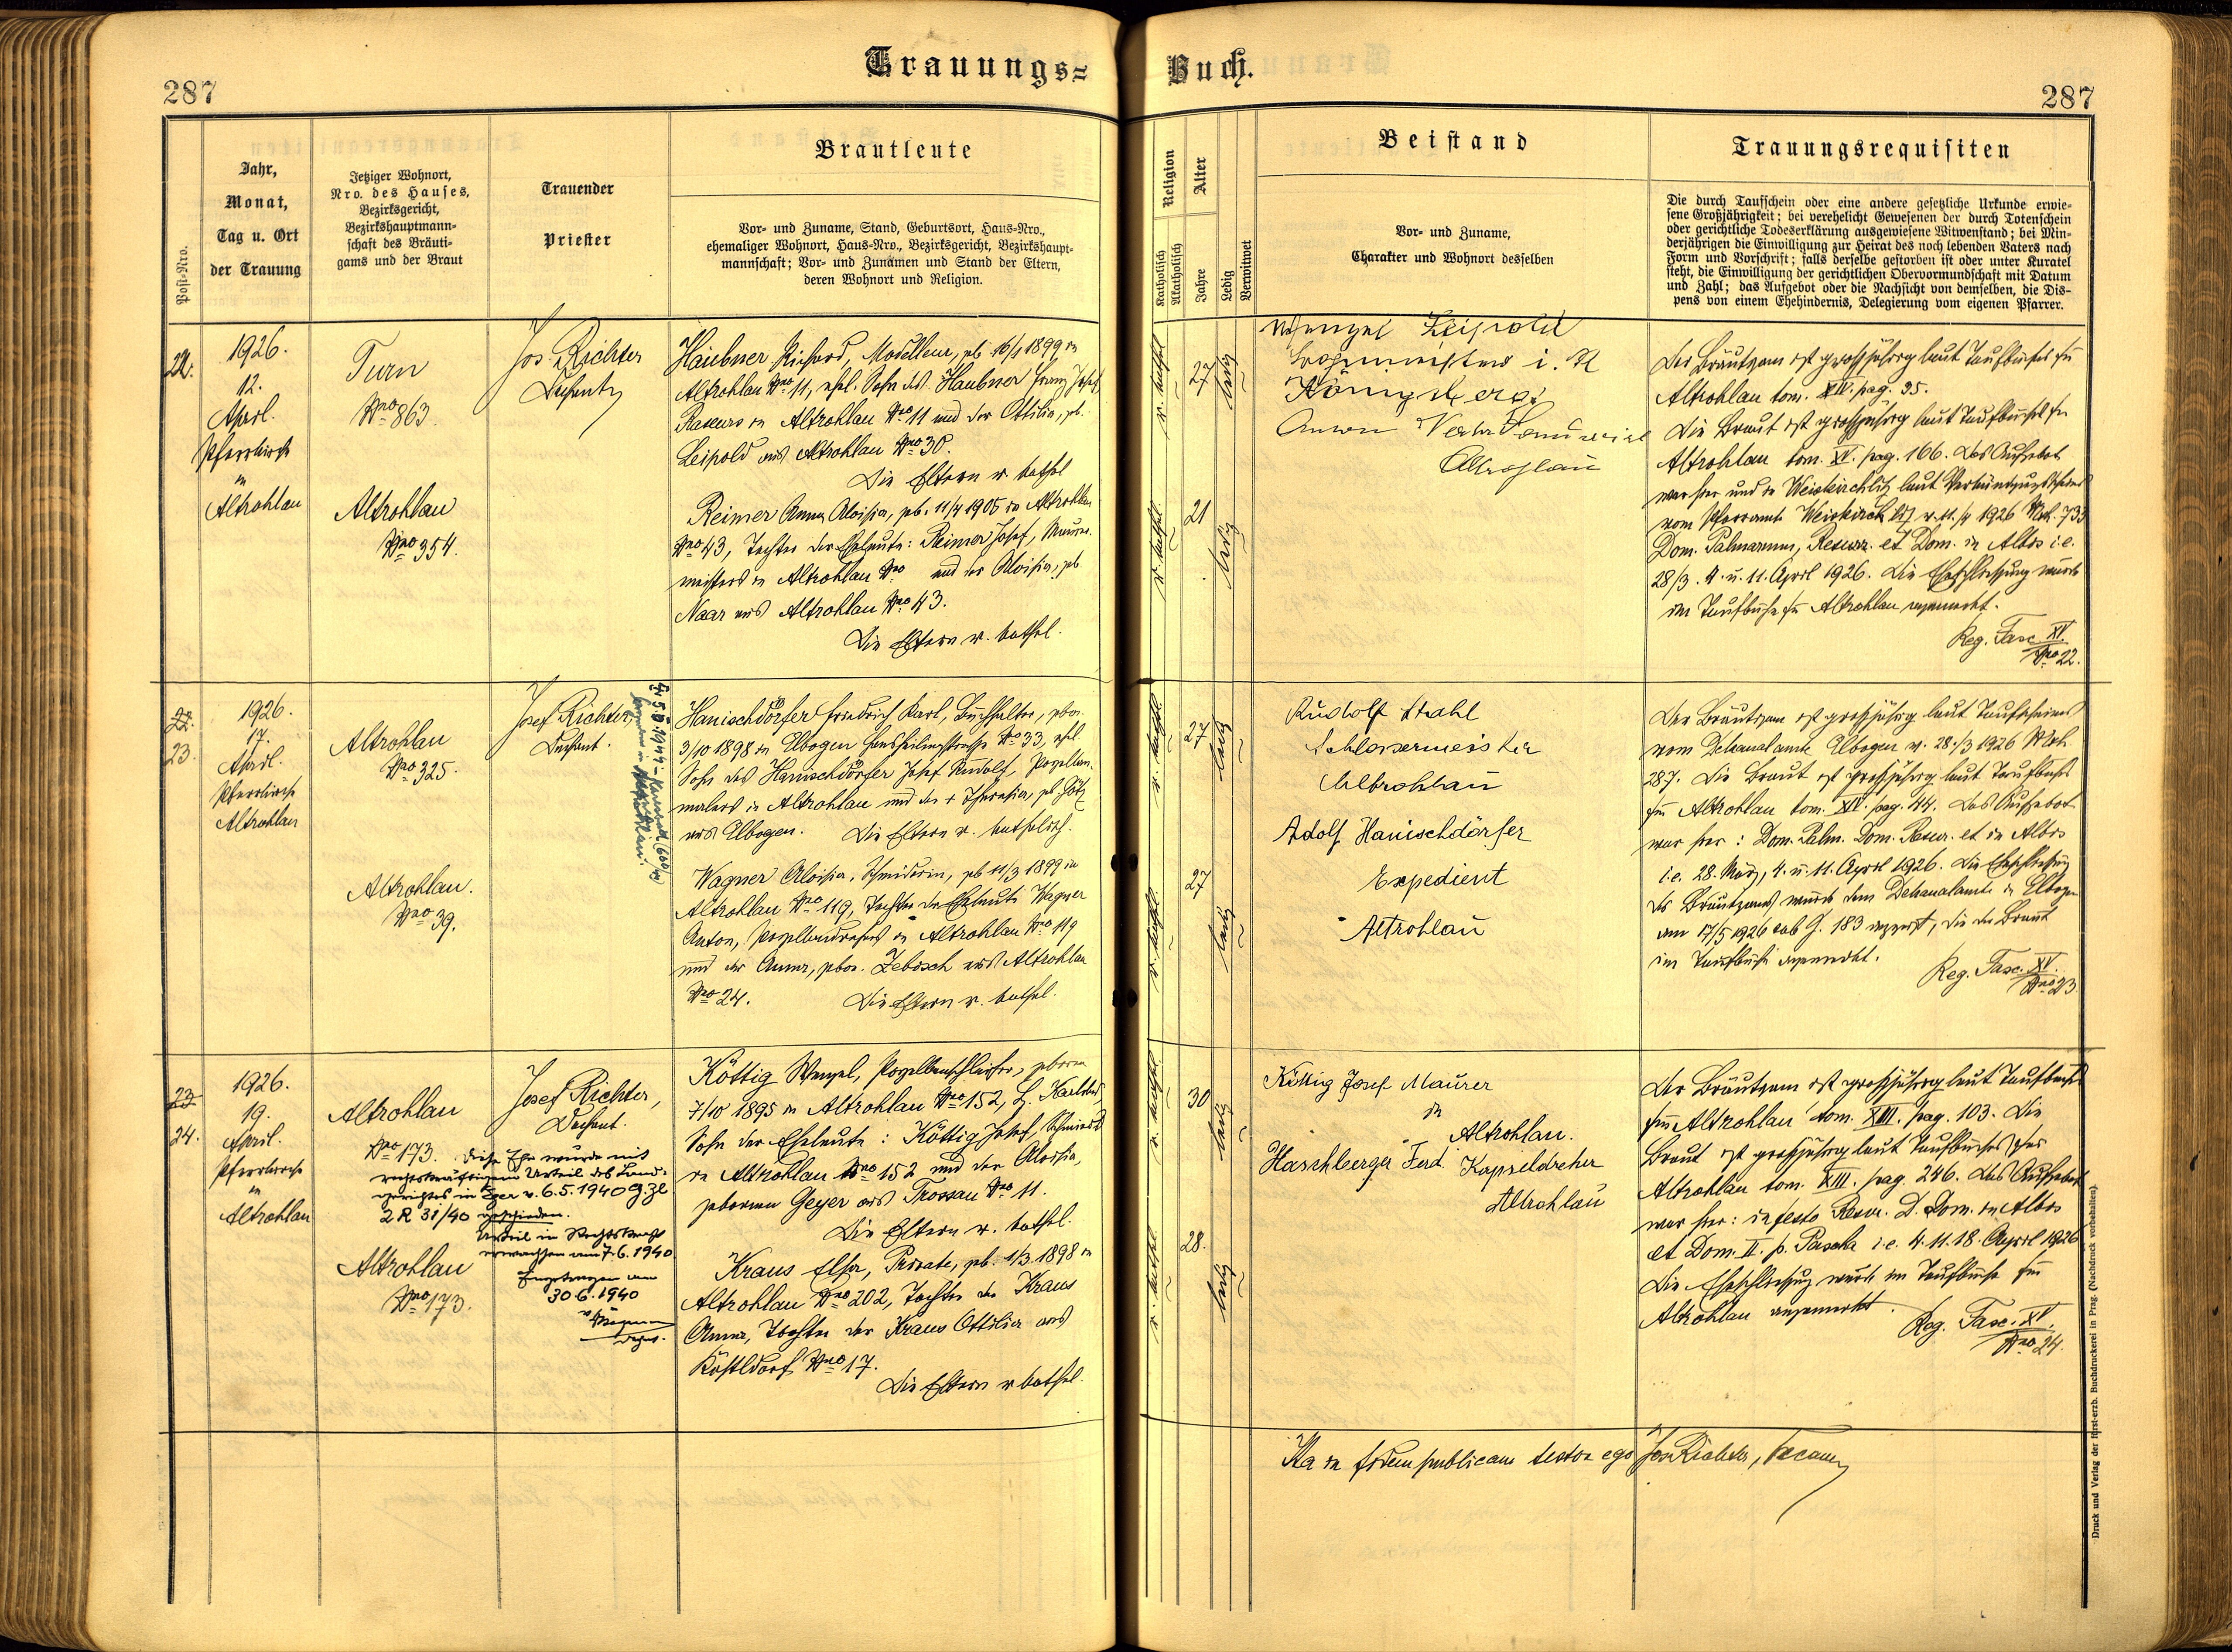 Trauungs=
Buch.
287
287
Post-Nro.
Jahr,
Monat,
Tag u. Ort
der Trauung
Jetziger Wohnort,
Nro. des Hauses,
Bezirksgericht,
Bezirkshauptmann-
schaft des Bräuti-
gams und der Braut
Trauender
Priester
Brautleute
Vor- und Zuname, Stand, Geburtsort, Haus-Nro.,
ehemaliger Wohnort, Haus-Nro., Bezirksgericht, Bezirkshaupt-
mannschaft; Vor- und Zunamen und Stand der Eltern,
deren Wohnort und Religion.
Religion
Katholisch
Akatholisch
Alter
Jahre
Ledig
Verwitwet
Beistand
Vor- und Zuname,
Charakter und Wohnort desselben
Trauungsrequisiten
Die durch Taufschein oder eine andere gesetzliche Urkunde erwie-
sene Großjährigkeit; bei verehelicht Gewesenen der durch Totenschein
oder gerichtliche Todeserklärung ausgewiesene Witwenstand; bei Min-
derjährigen die Einwilligung zur Heirat des noch lebenden Vaters nach
Form und Vorschrift; falls derselbe gestorben ist oder unter Kuratel
steht, die Einwilligung der gerichtlichen Obervormundschaft mit Datum
und Zahl; das Aufgebot oder die Nachsicht von demselben, die Dis-
pens von einem Ehehindernis, Delegierung vom eigenen Pfarrer.
22.
1926.
12.
April.
Pfarrkirche
in
Altrohlau
Turn
Nro 863.
Altrohlau
Nro 354.
Jos. Richter
Dechant
Haubner Richard, Modelleur, gb. 16/1 1899 in
Altrohlau Nro 11, ehl. Sohn des Haubner Franz Josef,
in Altrohlau Nro 11 und der Ottilia, gb.
Leipold aus Altrohlau Nro 30.
Die Eltern r. kathol.
Reimer Anna Aloisia, gb. 11/4 1905 in Altrohlau
Nro 43, Tochter der Eheleute: Reimer Josef, Maurer-
meisters in Altrohlau Nro und der Aloisia, gb.
Naar aus Altrohlau Nro 43.
Die Eltern r. kathol.
r. kathol.
27
ledig
r. kathol.
21
ledig
Wenzel Leipold
i. R
Königsberg
Anton
Altrohlau
Der Bräutigam ist großjährig laut Taufbuches für
Altrohlau tom. XIV. pag. 35.
Die Braut ist großjährig laut Taufbuches für
Altrohlau tom. XV. pag. 166. Das Aufgebot
war hier und in Weiskirchlitz laut Verkündigungsscheines
vom Pfarramte Weiskirchlitz v. 11./4 1926 Nrh. 733
Dom. Palmarum, Resurr. et Dom. in Albis i. e.
28/3. 4. u. 11. April 1926. Die Eheschliessung wurde
im Taufbuche für Altrohlau angemerkt.
Reg. Fasc. XV.
Nro 22.
22.
23.
1926.
17.
April.
Pfarrkirche
Altrohlau
Altrohlau
Nro 325.
Altrohlau.
Nro 39.
Josef Richter,
Dechant.
Hanischdörfer Friedrich Karl, Buchhalter, gbor.
3/10 1898 in Elbogen Nro 33, ehl.
Sohn des Hanischdörfer Josef Rudolf, Porzellan-
malers in Altrohlau und der + Theresia, gb. Götz
aus Elbogen. Die Eltern r. katholisch.
Wagner Aloisia, Schneiderin, gb 11/3 1899 in
Altrohlau Nro 119, Tochter der Eheleute Wagner
Anton, Porzellandrehers in Altrohlau Nro 119
und der Anna, gbor. Zebisch aus Altrohlau
Nro 24. Die Eltern r. kathol.
r. kathol.
27
ledig
r. kathol.
27
ledig
Rudolf Stahl
Schlossermeister
Altrohlau
Adolf Hanischdörfer
Expedient
Altrohlau
Der Bräutigam ist großjährig laut Taufscheines
vom Dekanalamte Elbogen v. 28./3 1926 Nrh.
287. Die Braut ist großjährig laut Taufbuches
für Altrohlau tom. XIV. pag. 44. Das Aufgebot
war hier: Dom. Palm. Dom. Resur. et in Albis
i. e. 28. März, 4. u. 11. April 1926. Die Eheschließung
des Bräutigams wurde dem Dekanalamte in Elbogen
am 17/5 1926 sub G. 183 angezeigt, die der Braut
im Taufbuche angemerkt.
Reg. Fasc. XV.
Nro 23
23
24.
1926.
19.
April.
Pfarrkirche
in
Altrohlau
Altrohlau
Nro 173.
Diese Ehe wurde mit
rechtskräftigem Urteil des Land-
gerichtes in Eger v. 6.5.1940 G.Zl.
2 R 31/40 geschieden.
Urteil in Rechtskraft
erwachsen am 7.6.1940
Eingetragen am
30.6.1940
Altrohlau
Nro 173.
Josef Richter,
Dechant.
Köttig Wenzel, Porzellanschleifer, geboren
7/10 1895 in Altrohlau Nro 152, B. Karlsbad,
Sohn der Eheleute: Köttig Josef, Schmied
in Altrohlau Nro 152 und der Aloisia,
geborene Geyer aus Trossau Nro 11.
Die Eltern r. kathol.
Kraus Elsa, Private, gb. 1/3 1898 in
Altrohlau Nro 202, Tochter der Kraus
Anna, Tochter der Kraus Ottilia aus
Köstldorf Nro 17.
Die Eltern r kathol.
r. kathol.
30
ledig
r. kathol.
28.
ledig
Köttig Josef Maurer
in
Altrohlau.
Haschberger Ferd. Kapseldreher
Altrohlau
Der Bräutigam ist großjährig laut Taufbuches
für Altrohlau tom. XIII. pag. 103. Die
Braut ist großjährig laut Taufbuches für
Altrohlau tom. XIII. pag. 246. Das Aufgebot
war hier: in festo Resur. D. Dom. in Albis
et Dom. II. p. Pascha i. e. 4. 11. 18. April 1926
Die Eheschliessung wurde im Taufbuche für
Altrohlau angemerkt.
Reg. Fasc. XV.
Nro 24.
Ita in fidem publicam testor ego Jos Richter,
Druck und Verlag der fürst-erzb. Buchdruckerei in Prag. (Nachdruck vorbehalten).